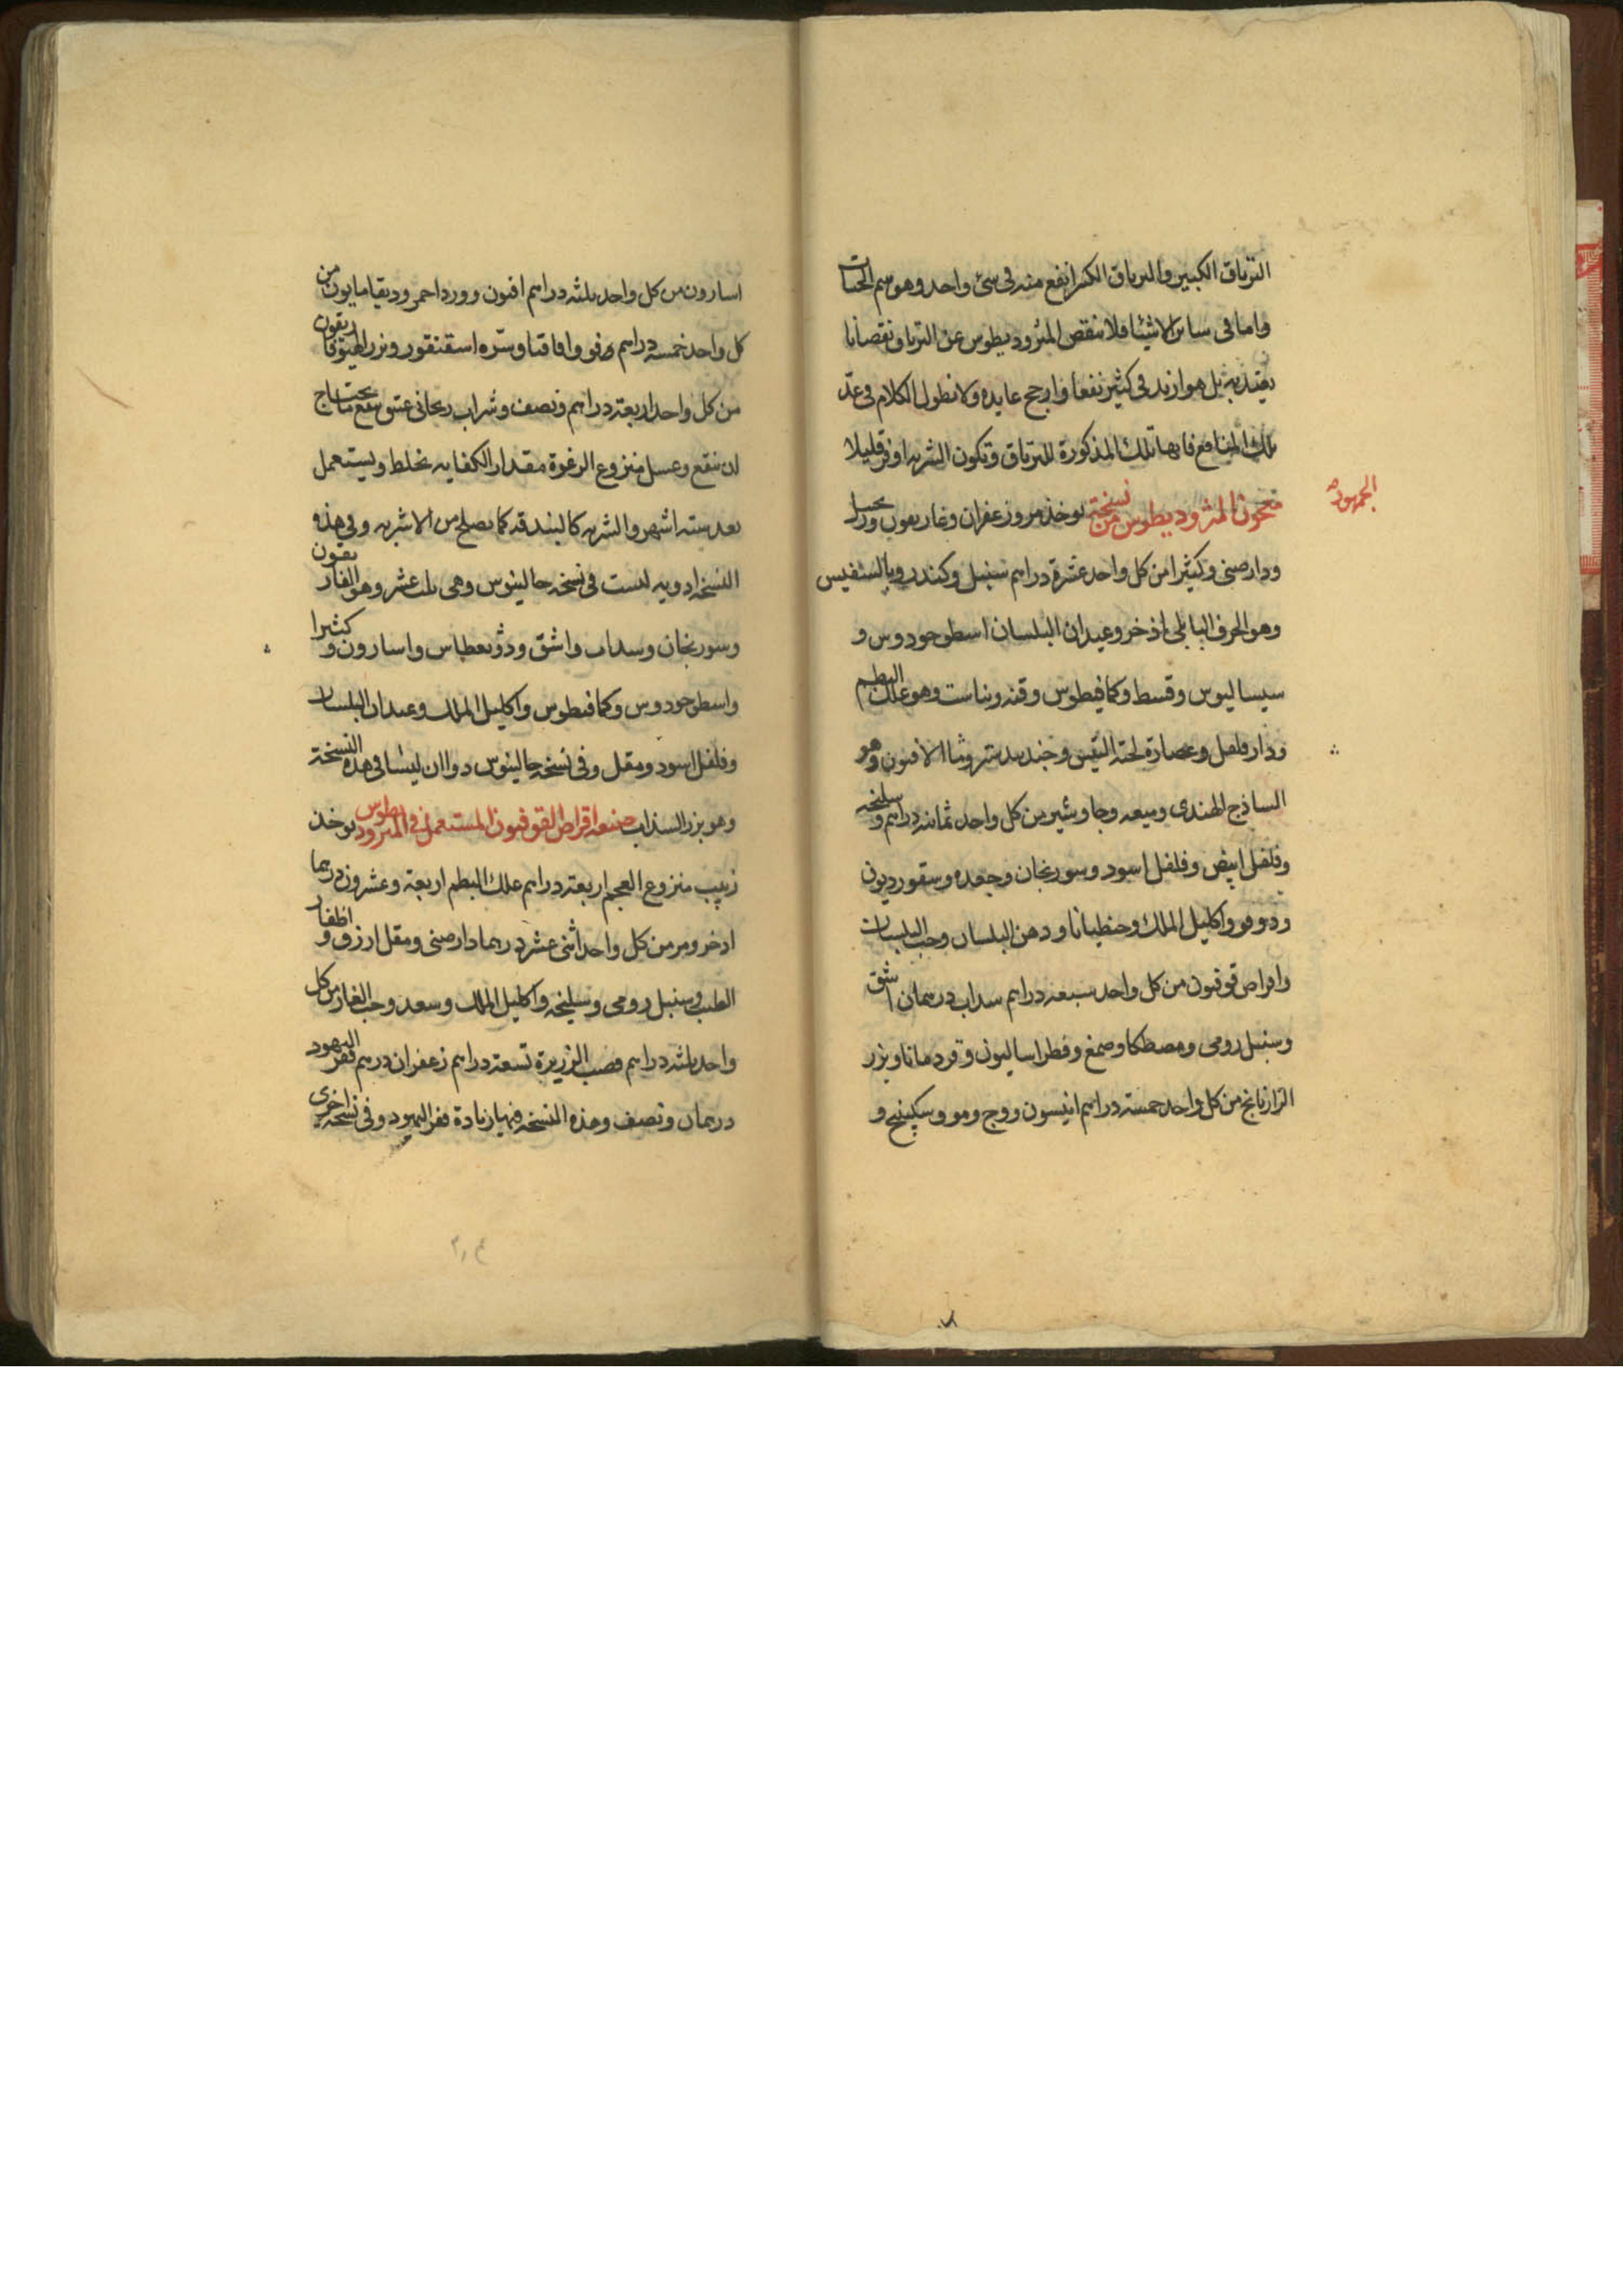 الترياق الكبير والترياق الكبير انفع منه في شئ واحد وهو سم الحيات
واما في سائر الاشيا فلا ينقص المثروديطوس عن الترياق نقصانا
يعتد به بل هو ازيد في كثير نفعا وارجح عايده ولا نطول الكلام في عد
تلك المنافع فانها تلك المذكورة للترياق وتكون الشربه اوفر قليلا
معجون المثروديطوس من نسخته يوخذ مر وزعفران وغاريقون وزنجبيل
الجمهور
ودارصيني وكثيرا من كل واحد عشرة دراهم سنبل وكندر
وهو الحرف البابلي اذخر وعيدان البلسان اسطوخودوس و
سيساليوس وقسط وكمافيطوس وقنه ونباست وهو علك البطم
ودار فلفل وعصارة لحية التيس وجندبيدستر الافيون وهو
الساذج الهندي وميعه وجاوشير من كل واحد ثمانيه دراهم وسليخه
وفلفل ابيض وفلفل اسود وسورنجان وجعده وسقورديون
ودوقو واكليل الملك وجنطيانا ودهن البلسان وحب البلسان
واقراص قوفيون من كل واحد سبعه دراهم سداب درهمان اشق
وسنبل رومي ومصطكا وصمغ وفطراساليون وقردمانا وبزر
الرازيانج من كل واحد خمسه دراهم انيسون ووج ومو وسكبينج و
اسارون من كل واحد ثلثه دراهم افيون وورد احمر من
كل واحد خمسه دراهم وفو واقاقيا وسره اسقنقور وبزر
من كل واحد اربعة دراهم ونصف وشراب ريحاني عتيق ينقع ما يحتاج
ان ينقع وعسل منزوع الرغوة مقدار الكفايه يخلط ويستعمل
بعد سته اشهر والشربه كالبندقه كما يصلح من الاشربه وفي هذه
النسخه ادويه ليست في نسخه جالينوس وهي ثلث عشر وهو الغاريقون
وسورنجان وسداب واشق واسارون وكثيرا
واسطوخودوس وكمافيطوس واكليل الملك وعيدان البلسان
وفلفل اسود ومقل وفي نسخه جالينوس دواان ليسا في هذه النسخة
وهو بزر السذاب صنعه اقراص القوفيون المستعمل في المثروديطوس يوخذ
زبيب منزوع العجم اربعة دراهم علك البطم اربعة وعشرون درهما
اذخر ومر من كل واحد اثني عشر درهما دارصيني ومقل ازرق واظفار
الطيب وسنبل رومي وسليخه واكليل الملك وسعد وحب الغار من كل
واحد ثلثه دراهم قصب الذريرة تسعة دراهم زعفران درهم قفر اليهود
درهمان ونصف وهذه النسخه فيها زيادة قفر اليهود وفي نسخه اخرى